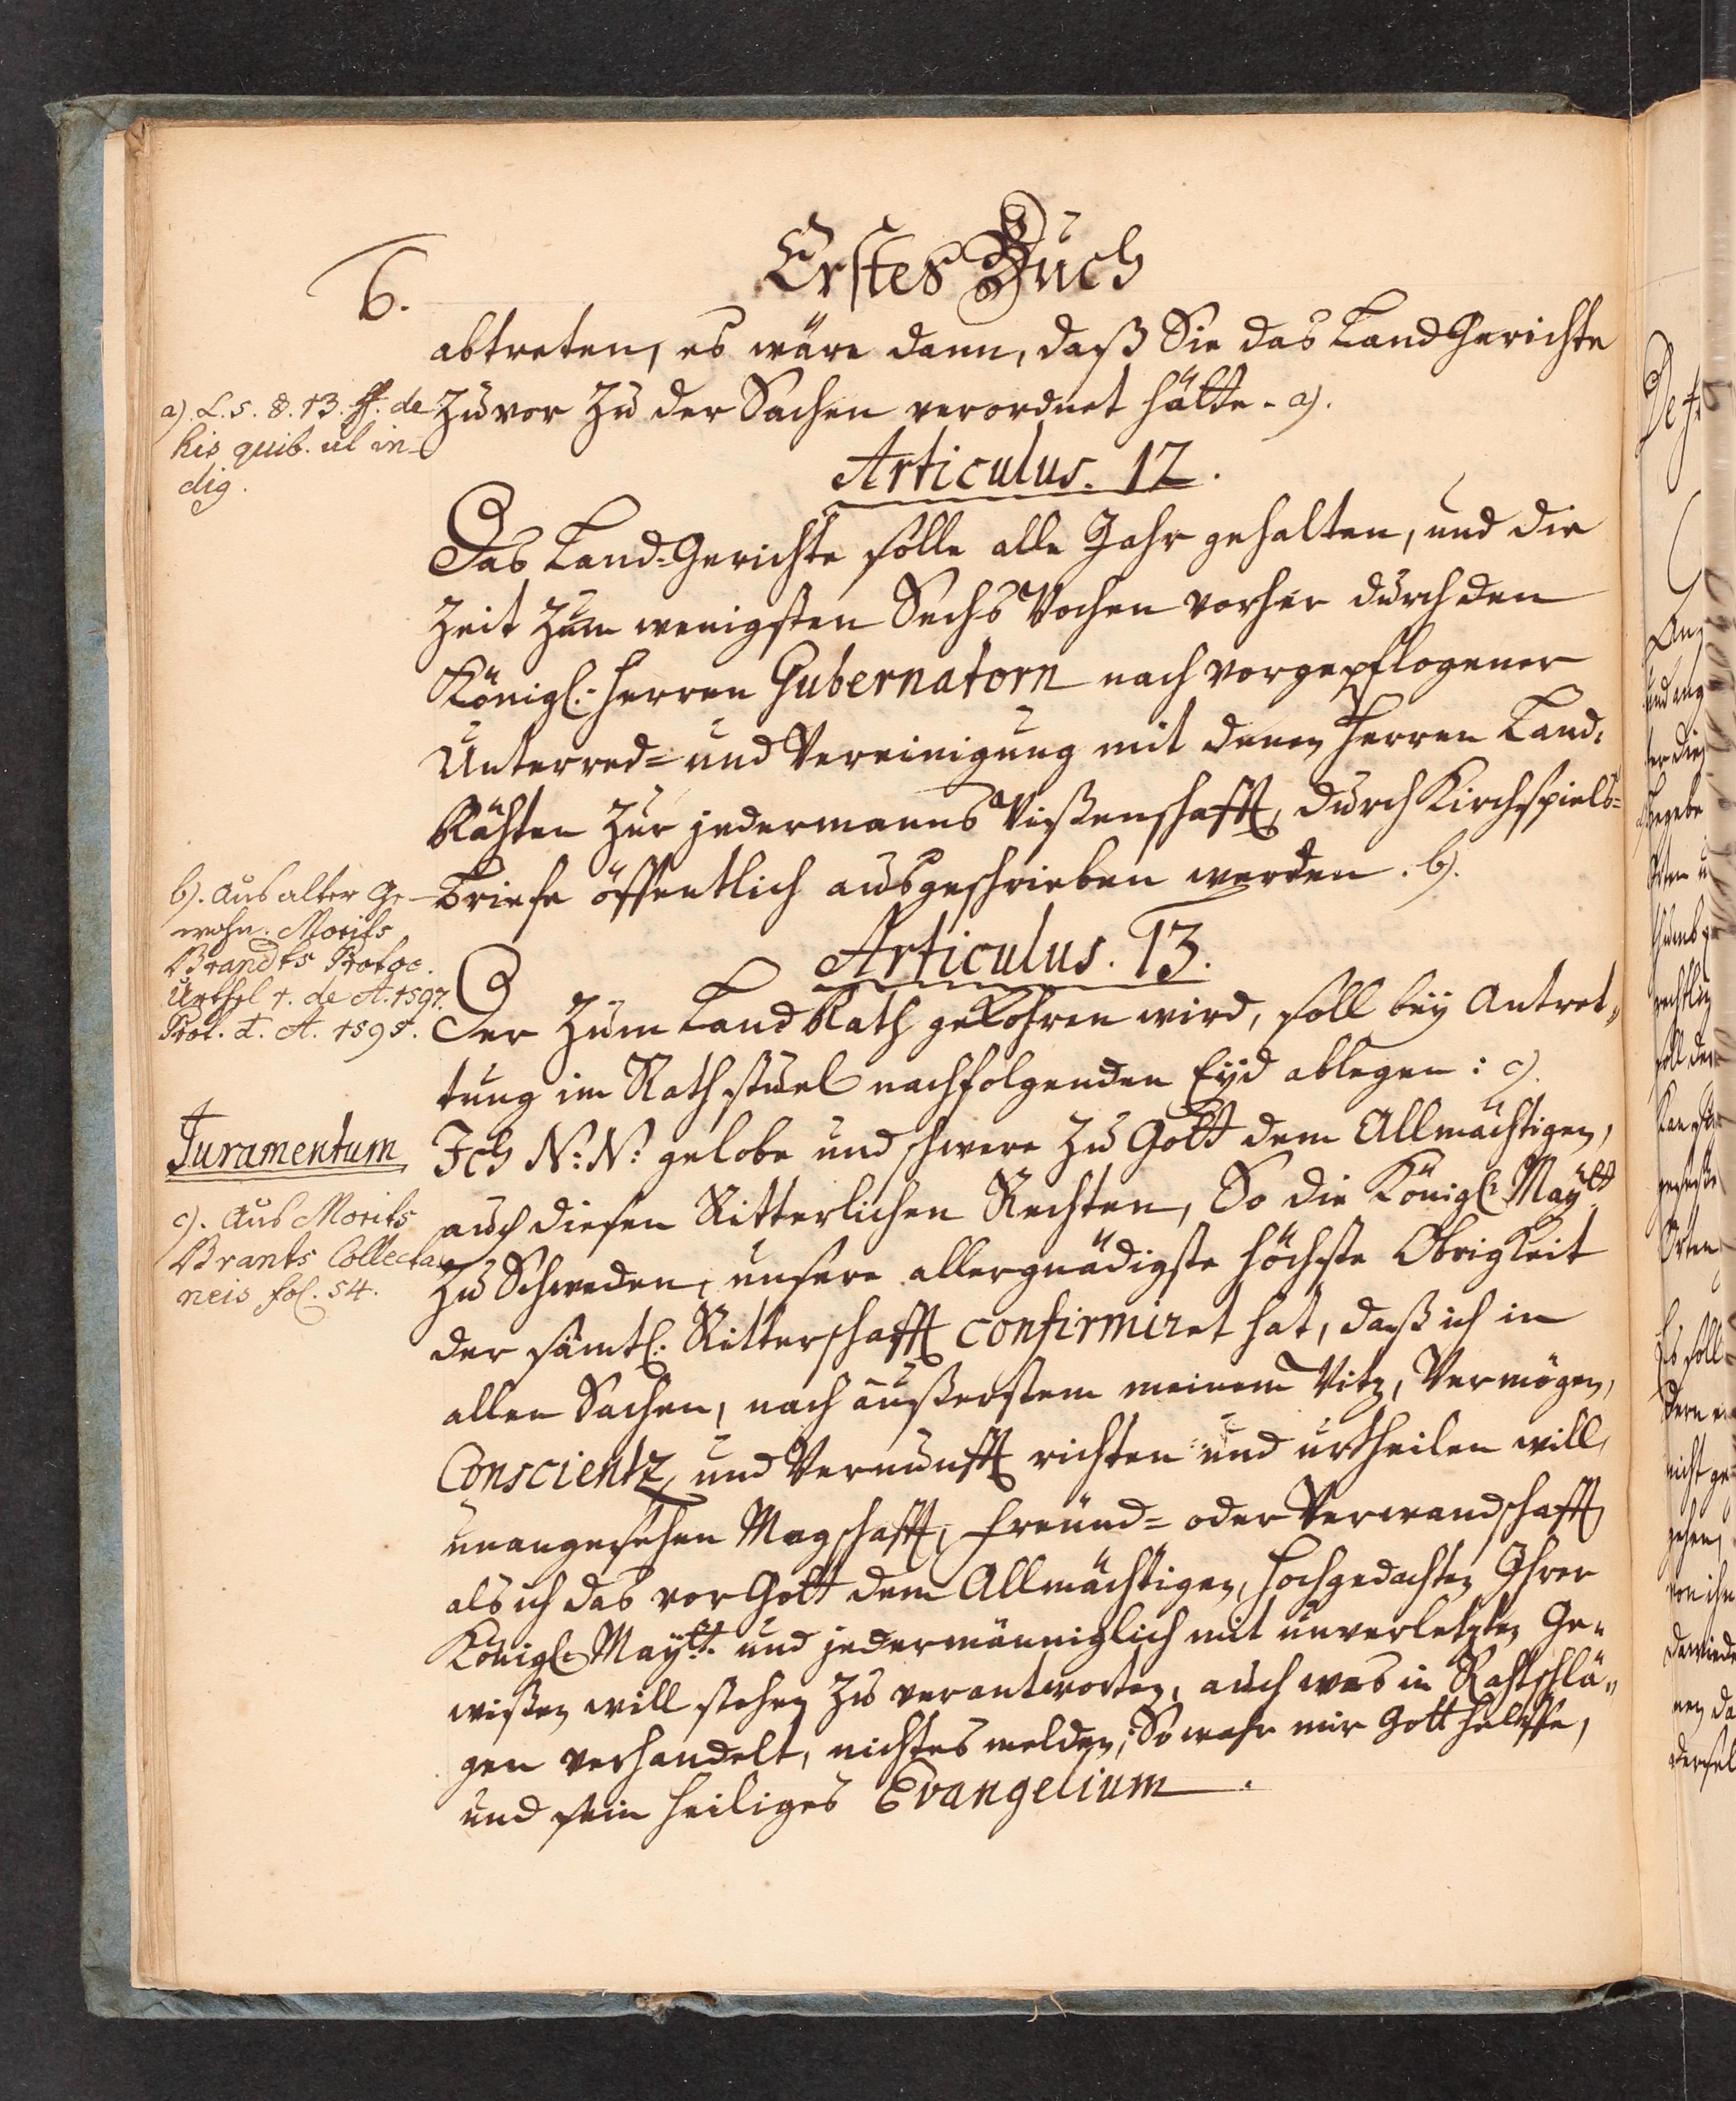 6.
Erstes Buch
abtreten, es wäre dann, daß Sie das Land Gerichte
zuvor zu der Sachen verordnet hätte. a).
a). L. 5. 8. 13. ff. de
his quib. ul in-
dig.
Articulus. 12.
Das Land-Gerichte solle alle Jahr gehalten, und die
Zeit zum wenigsten Sechs Wochen vorher durch den
Königl: Herren Gubernatorn nach vorgepflogener
Unterred= und Vereinigung mit denen Herren Land-
Räthen zur jedermanns Wißenschafft, durch Kirchspiels=
Briefe öffentlich ausgeschrieben werden. b).
b). Aus alter Ge-
wohn. Morits
Brandts Protoc.
Urthel 1. de A. 1597.
Prot. d. A. 1595.
Articulus. 13.
Der zum Land Rath gekohren wird, soll beÿ Antret„
tung im Rathstuel nachfolgenden Eÿd ablegen: c).
Juramentum
Ich N: N: gelobe und schwere zu Gott dem Allmächtigen,
auch diesen Ritterlichen Rechten, So die Königl: Maÿtt
zu Schweden, unsere allergnädigste höchste Obrigkeit
c). Aus Morits
Brants Collecta-
neis fol. 54.
der sämtl: Ritterschafft confirmiret hat, daß ich in
allen Sachen, nach äußerstem meinem Witz, Vermögen,
Conscientz, und Vernunfft richten und urtheilen will,
unangesehen Magschafft, freünd= oder Verwandschafft,
als ich das vor Gott dem Allmächtigen, hochgedachten Ihrer
Königl: Maÿtt: und jedermänniglich mit unverletzten Ge„
wißen will stehen zu verantworten, auch was in Rahtschlä„
gen verhandelt, nichtes melden; So wahr mir Gott helffe,
und sein heiliges Evangelium.